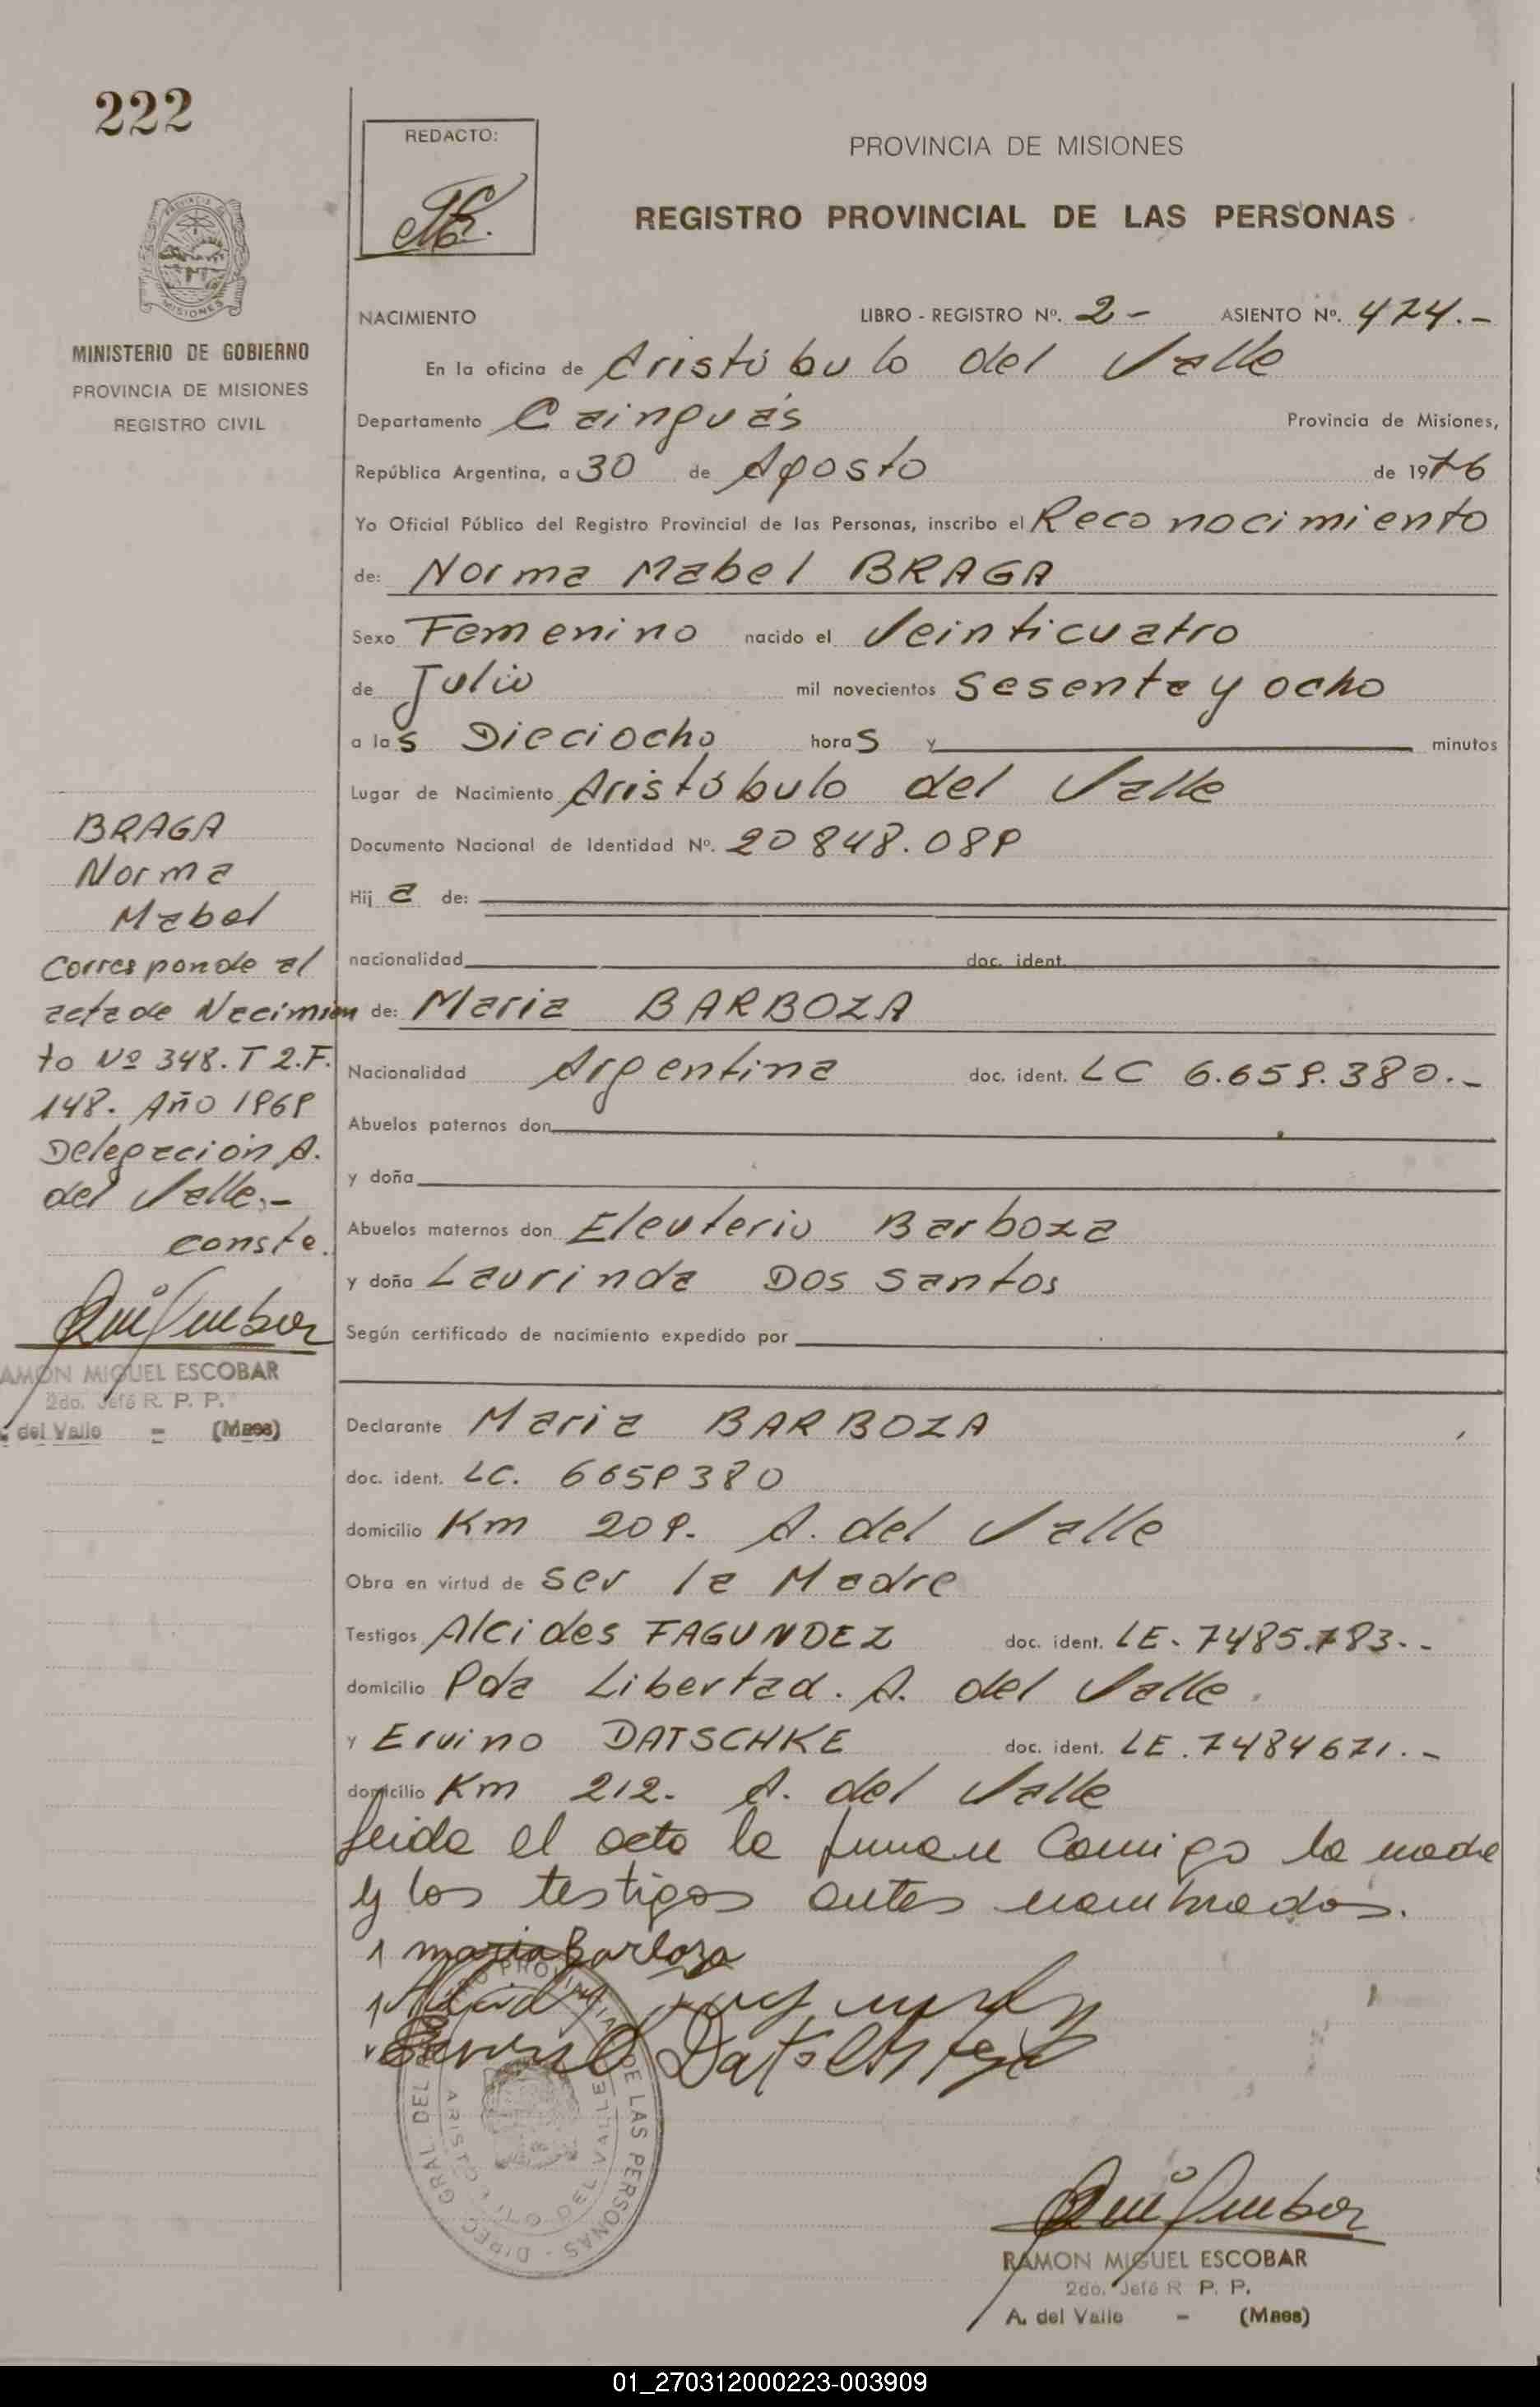 222
REDACTO:
PROVINCIA DE MISIONES
REGISTRO PROVINCIAL DE LAS PERSONAS
MINISTERIO DE GOBIERNO
PROVINCIA DE MISIONES
REGISTRO CIVIL
NACIMIENTO LIBRO - REGISTRO Nº. 2- ASIENTO Nº. 474.-
En la oficina de Aristóbulo del Valle
Departamento Cainguás Provincia de Misiones,
República Argentina, a 30 de Agosto de 1976
Yo Oficial Público del Registro Provincial de las Personas, inscribo el Reconocimiento
de: Norma Mabel BRAGA
Sexo Femenino nacido el Veinticuatro
de Julio mil novecientos sesenta y ocho
a las Dieciocho horas y minutos
Lugar de Nacimiento Aristóbulo del Valle
Documento Nacional de Identidad Nº. 20848.089
Hija de:
nacionalidad doc. ident.
de: Maria BARBOZA
Nacionalidad Argentina doc. ident. LC 6.659.380.-
Abuelos paternos don
y doña
Abuelos maternos don Eleuterio Barboza
y doña Laurinda Dos santos
Según certificado de nacimiento expedido por
BRAGA
Norma
Mabel
Corresponde al
acta de Nacimien
to Nº 348. T 2. F.
148. Año 1969
Delegación A.
del Valle.-
conste.
RAMON MIGUEL ESCOBAR
2do. Jefe R. P. P.
A. del Valle - (Mnes)
Declarante Maria BARBOZA
doc. ident. LC. 6659380
domicilio Km 209. A. del Valle
Obra en virtud de ser la Madre
Testigos Alcides FAGUNDEZ doc. ident. LE. 7485.783.-
domicilio Pda Libertad. A. del Valle.
y Ervino DATSCHKE doc. ident. LE. 7484671.-
domicilio Km 212. A. del Valle
Leida el acta la firman Comigo la madre
y los testigos antes nombrados.
1 maria Barboza
DIREC. GRAL. DEL REGISTRO PROVINCIAL DE LAS PERSONAS
ARISTOBULO DEL VALLE
RAMON MIGUEL ESCOBAR
2do. Jefe R. P. P.
A. del Valle - (Mnes)
01_270312000223-003909